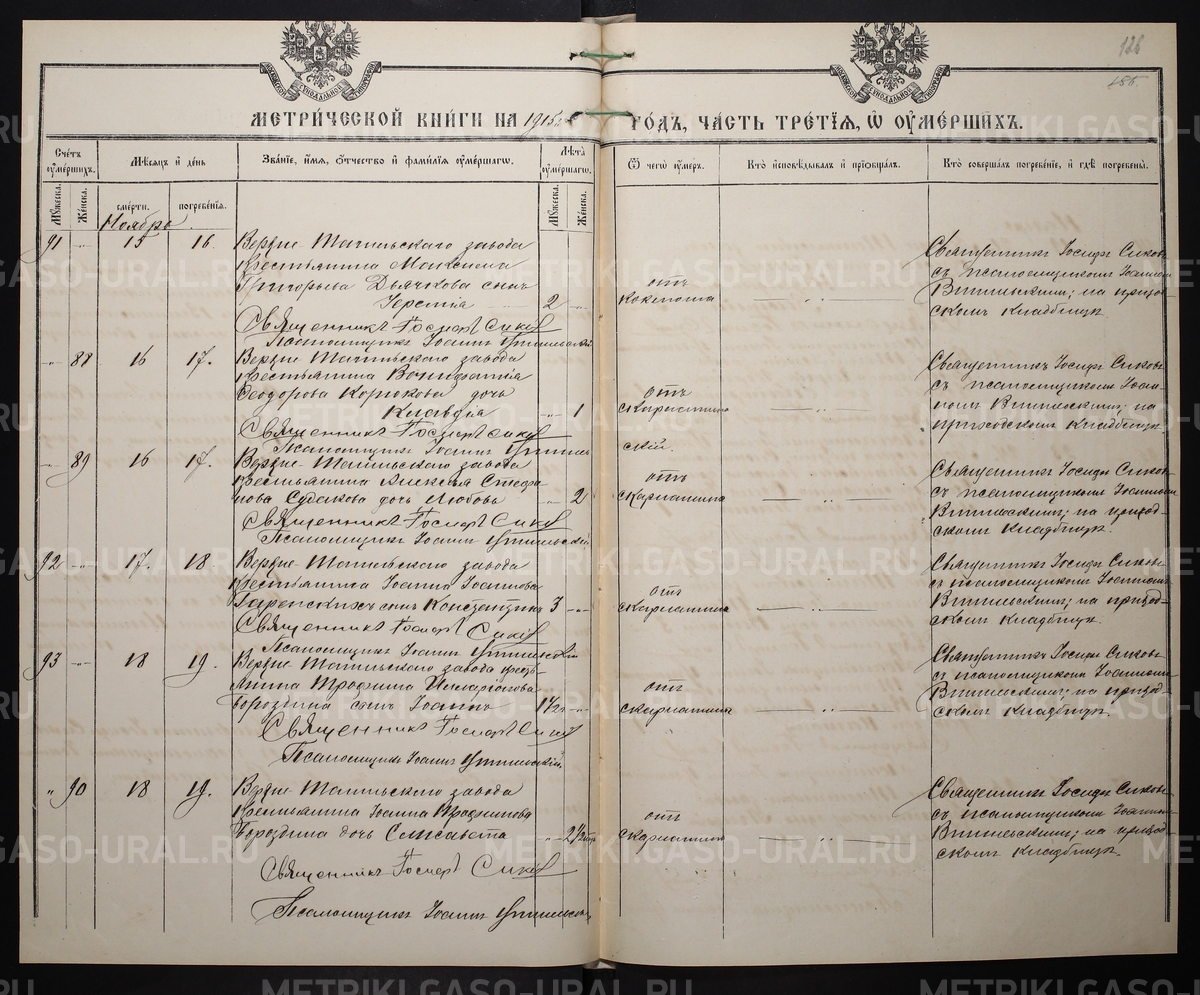 128
МЕТРИЧЕСКОЙ КНИГИ НА 1915 г. ГОДЪ, ЧАСТЬ ТРЕТІЯ, Ѡ ОУМЕРШИХЪ.
Счетъ оумершихъ.
Мѣсяцъ и день
Званіе, имя, отчество и фамилія оумершагѡ.
Лѣта оумершагѡ.
Ѿ чегѡ оумеръ.
Кто исповѣдывалъ и пріобщалъ.
Кто совершалъ погребеніе, и гдѣ погребены.
Мꙋжеска.
Женска.
смерти.
погребенія.
Мꙋжеска.
Женска.
Ноябрь
91 15 16. Верхне Тагильскаго завода
крестьянина Максима
Григорьева Дьячкова сынъ
2
Священникъ Іосифъ Сиковъ
Псаломщикъ Іоаннъ
отъ
коклюша
Священникъ Іосифъ Сиковъ
съ псаломщикомъ Іоанномъ
на приход-
скомъ кладбищѣ.
88 16 17. Верхне Тагильскаго завода
крестьянина Вонифатія
Ѳеодорова Корюкова дочь
Клавдія 1
Священникъ Іосифъ Сиковъ
Псаломщикъ Іоаннъ
отъ
скарлатины
Священникъ Іосифъ Сиковъ
съ псаломщикомъ Іоан-
номъ на
приходскомъ кладбищѣ.
89 16 17. Верхне Тагильскаго завода
крестьянина Алексѣя Стефа-
нова Судакова дочь Любовь 2
Священникъ Іосифъ Сиковъ
Псаломщикъ Іоаннъ
отъ
скарлатины
Священникъ Іосифъ Сиковъ
съ псаломщикомъ Іоанномъ
на приход-
скомъ кладбищѣ.
92 17. 18 Верхне Тагильскаго завода
крестьянина Іоанна Іоаннова
сынъ Константинъ 3
Священникъ Іосифъ Сиковъ
Псаломщикъ Іоаннъ
отъ
скарлатины
Священникъ Іосифъ Сиковъ
съ псаломщикомъ Іоанномъ
на приход-
скомъ кладбищѣ.
93 18 19. Верхне Тагильскаго завода кресть-
янина Трофима Илларіонова
Бороздина сынъ Іоаннъ 1½
Священникъ Іосифъ Сиковъ
Псаломщикъ Іоаннъ
отъ
скарлатины
Священникъ Іосифъ Сиковъ
съ псаломщикомъ Іоанномъ
на приход-
скомъ кладбищѣ.
90 18 19. Верхне Тагильскаго завода
крестьянина Іоанна Трофимова
Бороздина дочь Елисавета 2½
Священникъ Іосифъ Сиковъ
Псаломщикъ Іоаннъ
отъ
скарлатины
Священникъ Іосифъ Сиковъ
съ псаломщикомъ Іоанномъ
на приход-
скомъ кладбищѣ.
METRIKI.GASO-URAL.RU